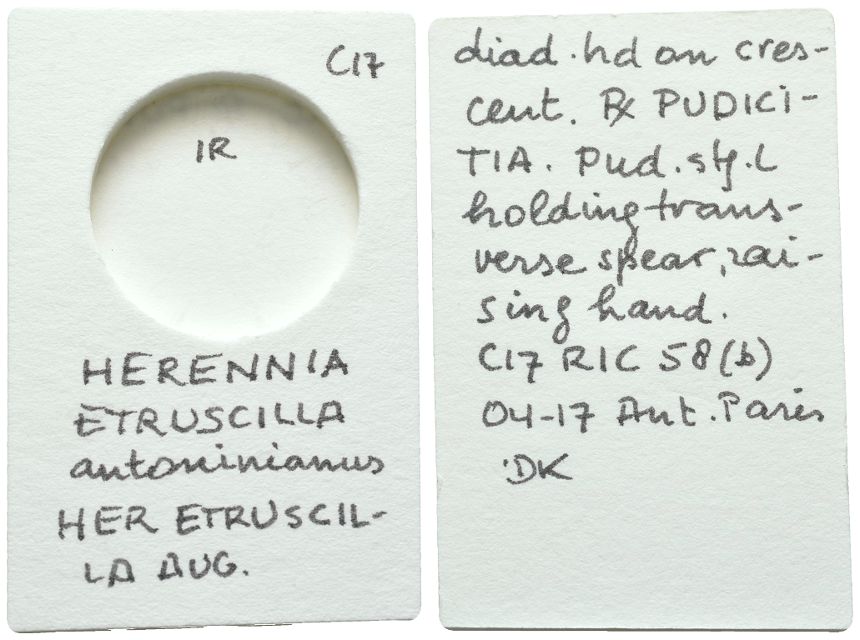 C17
IR
HERENNIA
ETRUSCILLA
antoninianus
HER ETRUSCIL-
LA AUG.
diad. hd on cres-
cent. Rx PUDICI-
TIA. Pud. stg. L
holding trans-
verse spear, rai-
sing hand.
C17 RIC 58(b)
04-17 Ant. Paris
DK